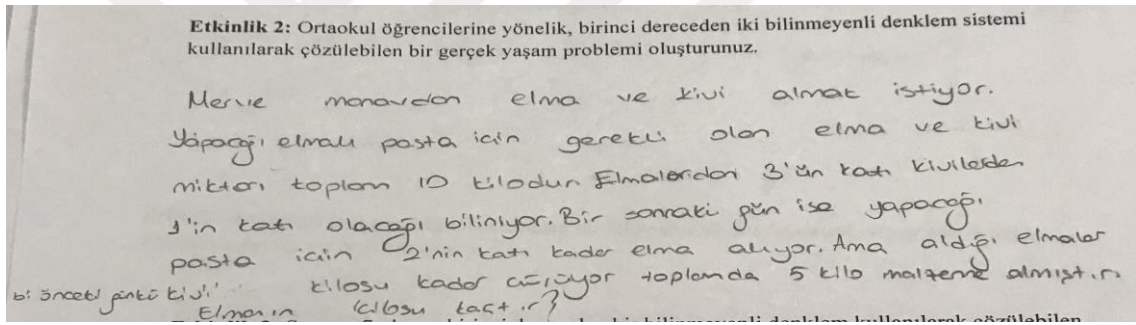 Etkinlik 2: Ortaokul öğrencilerine yönelik, birinci dereceden iki bilinmeyenli denklem sistemi
kullanılarak çözülebilen bir gerçek yaşam problemi oluşturunuz.
Merve manavdan elma ve kivi almak istiyor.
Yapacağı elmalı pasta için gerekli olan elma ve kivi
miktarı toplam 10 kilodur. Elmalardan 3'ün katı kivilerden
1'in katı olacağı biliniyor. Bir sonraki gün ise yapacağı
pasta için 2'nin katı kadar elma alıyor. Ama aldığı elmalar
bi önceki günkü kivi kilosu kadar çürüyor toplamda 5 kilo malzeme almıştır.
Elmanın kilosu kaçtır?